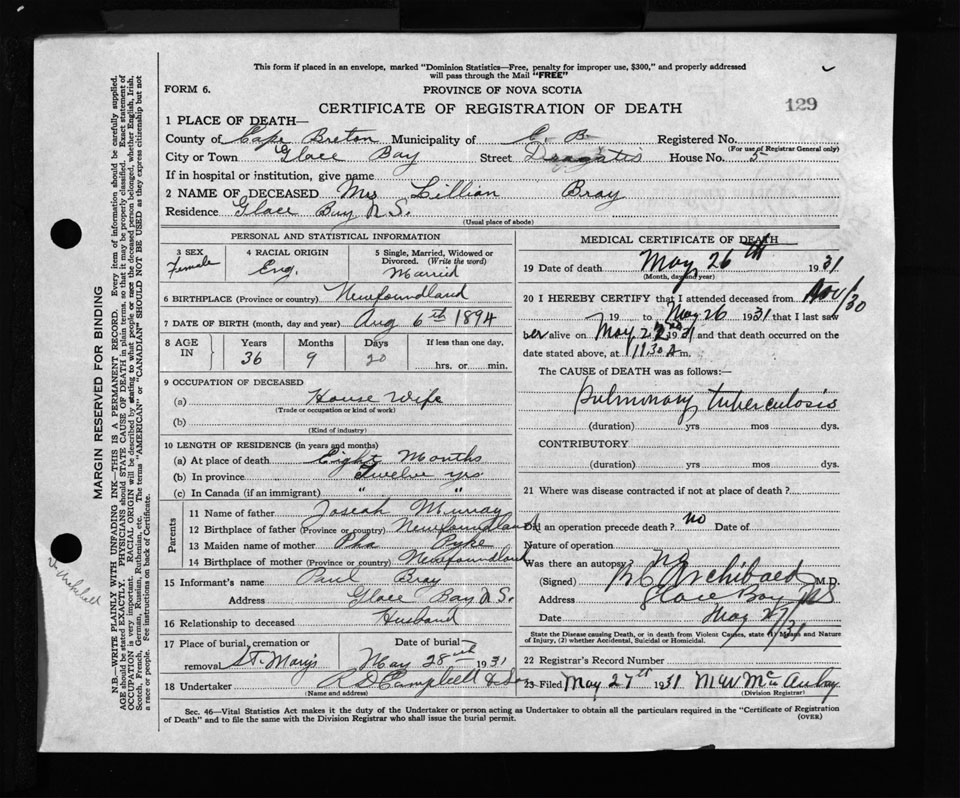 This form if placed in an envelope, marked "Dominion Statistics—Free, penalty for improper use, $300," and properly addressed
will pass through the Mail "FREE"
FORM 6.
PROVINCE OF NOVA SCOTIA
CERTIFICATE OF REGISTRATION OF DEATH
129
1 PLACE OF DEATH—
County of Cape Breton Municipality of C. B. Registered No.
(For use of Registrar General only)
City or Town Glace Bay Street House No. 5
If in hospital or institution, give name
2 NAME OF DECEASED Mrs Lillian Bray
Residence Glace Bay N.S.
(Usual place of abode)
PERSONAL AND STATISTICAL INFORMATION
3 SEX
Female
4 RACIAL ORIGIN
Eng.
5 Single, Married, Widowed or
Divorced. (Write the word)
Married
6 BIRTHPLACE (Province or country) Newfoundland
7 DATE OF BIRTH (month, day and year) Aug 6th 1894
8 AGE
IN
Years
36
Months
9
Days
20
If less than one day.
hrs. or min.
9 OCCUPATION OF DECEASED
(a) House Wife
(Trade or occupation or kind of work)
(b)
(Kind of industry)
10 LENGTH OF RESIDENCE (in years and months)
(a) At place of death Eight Months
(b) In province Twelve yrs
(c) In Canada (if an immigrant) " "
Parents
11 Name of father Joseph Murray
12 Birthplace of father (Province or country) Newfoundland
13 Maiden name of mother Pyke
14 Birthplace of mother (Province or country) Newfoundland
15 Informant's name Paul Bray
Address Glace Bay N.S.
16 Relationship to deceased Husband
17 Place of burial, cremation or
removal St. Mary's
Date of burial
May 28th 1931
18 Undertaker R D Campbell & Son
(Name and address)
MEDICAL CERTIFICATE OF DEATH
19 Date of death May 26th 1931
(Month, day and year)
20 I HEREBY CERTIFY that I attended deceased from Nov/30
19 to May 26 1931 that I last saw
her alive on May 22nd 1931 and that death occurred on the
date stated above, at 11.30 a m.
The CAUSE of DEATH was as follows:—
Pulmonary tuberculosis
(duration) yrs mos dys.
CONTRIBUTORY
(duration) yrs mos dys.
21 Where was disease contracted if not at place of death?
Did an operation precede death? no Date of
Nature of operation
Was there an autopsy? no
(Signed) Archibald M.D.
Address Glace Bay NS
Date May 27/31
State the Disease causing Death, or in death from Violent Causes, state (1) Means and Nature
of Injury, (2) whether Accidental, Suicidal or Homicidal.
22 Registrar's Record Number
23 Filed May 27th 1931
(Division Registrar)
Sec. 46—Vital Statistics Act makes it the duty of the Undertaker or person acting as Undertaker to obtain all the particulars required in the "Certificate of Registration
of Death" and to file the same with the Division Registrar who shall issue the burial permit.
(OVER)
MARGIN RESERVED FOR BINDING
N.B.—WRITE PLAINLY WITH UNFADING INK—THIS IS A PERMANENT RECORD. Every item of information should be carefully supplied.
AGE should be stated EXACTLY. PHYSICIANS should STATE CAUSE OF DEATH in plain terms, so that it may be properly classified. Exact statement of
OCCUPATION is very important. RACIAL ORIGIN will be described by stating to what people or race the deceased person belonged, whether English, Irish,
Scotch, French, German, Russian, Ruthenian, etc. The terms "AMERICAN" or "CANADIAN" SHOULD NOT BE USED as they express citizenship but not
a race or people. See instructions on back of Certificate.
Dr Archibald